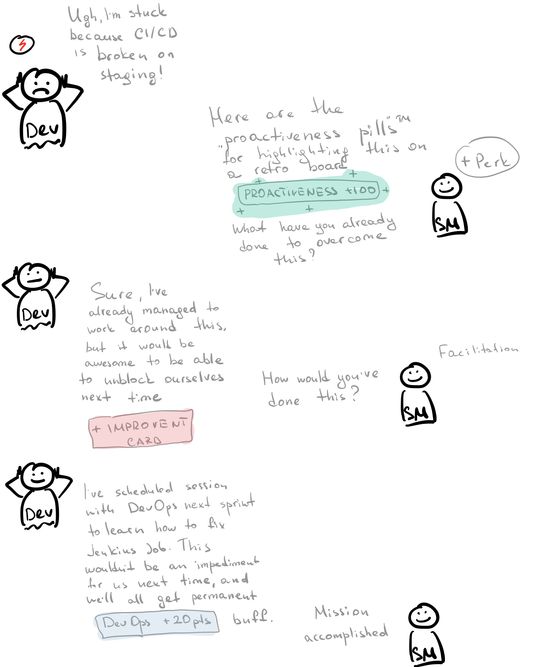 Ugh, I'm stuck
because CI/CD
is broken on
staging!
Dev
Here are the
"proactiveness pills"™
for highlighting this on
a retro board
PROACTIVENESS +100
+ Perk
SM
What have you already
done to overcome
this?
Dev
Sure, I've
already managed to
work around this,
but it would be
awesome to be able
to unblock ourselves
next time
+ IMPROVENT
CARD
Facilitation
How would you've
done this?
SM
Dev
I've scheduled session
with DevOps next sprint
to learn how to fix
Jenkins Job. This
wouldn't be an impediment
for us next time, and
we'll all get permanent
DevOps +20pts buff.
Mission
accomplished
SM